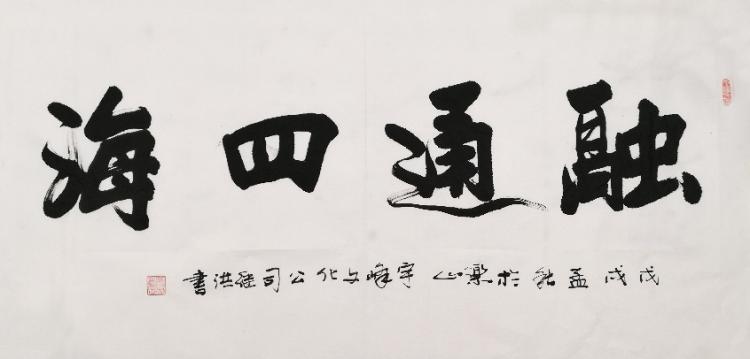 融通四海
戊戌孟秋於樂山宇峰文化公司洪書